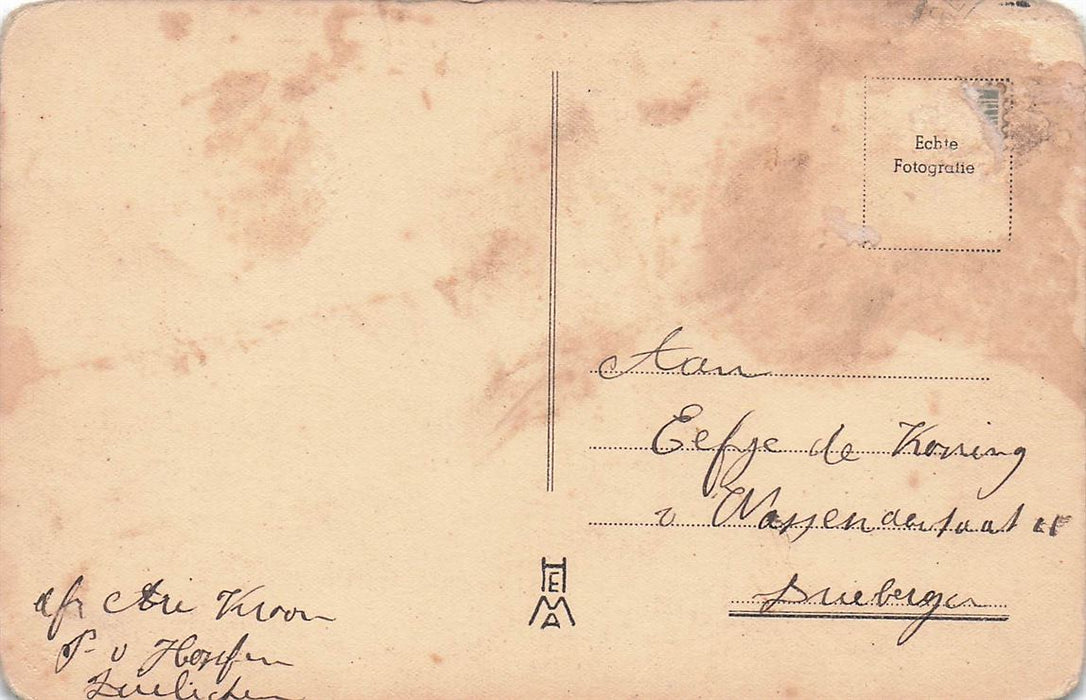 Echte
Fotografie
Aan
Eefje de Koning
v Wassenaerstraat
Drieberge
HEMA
afz Arie Kroon
P. v
Zuilichem